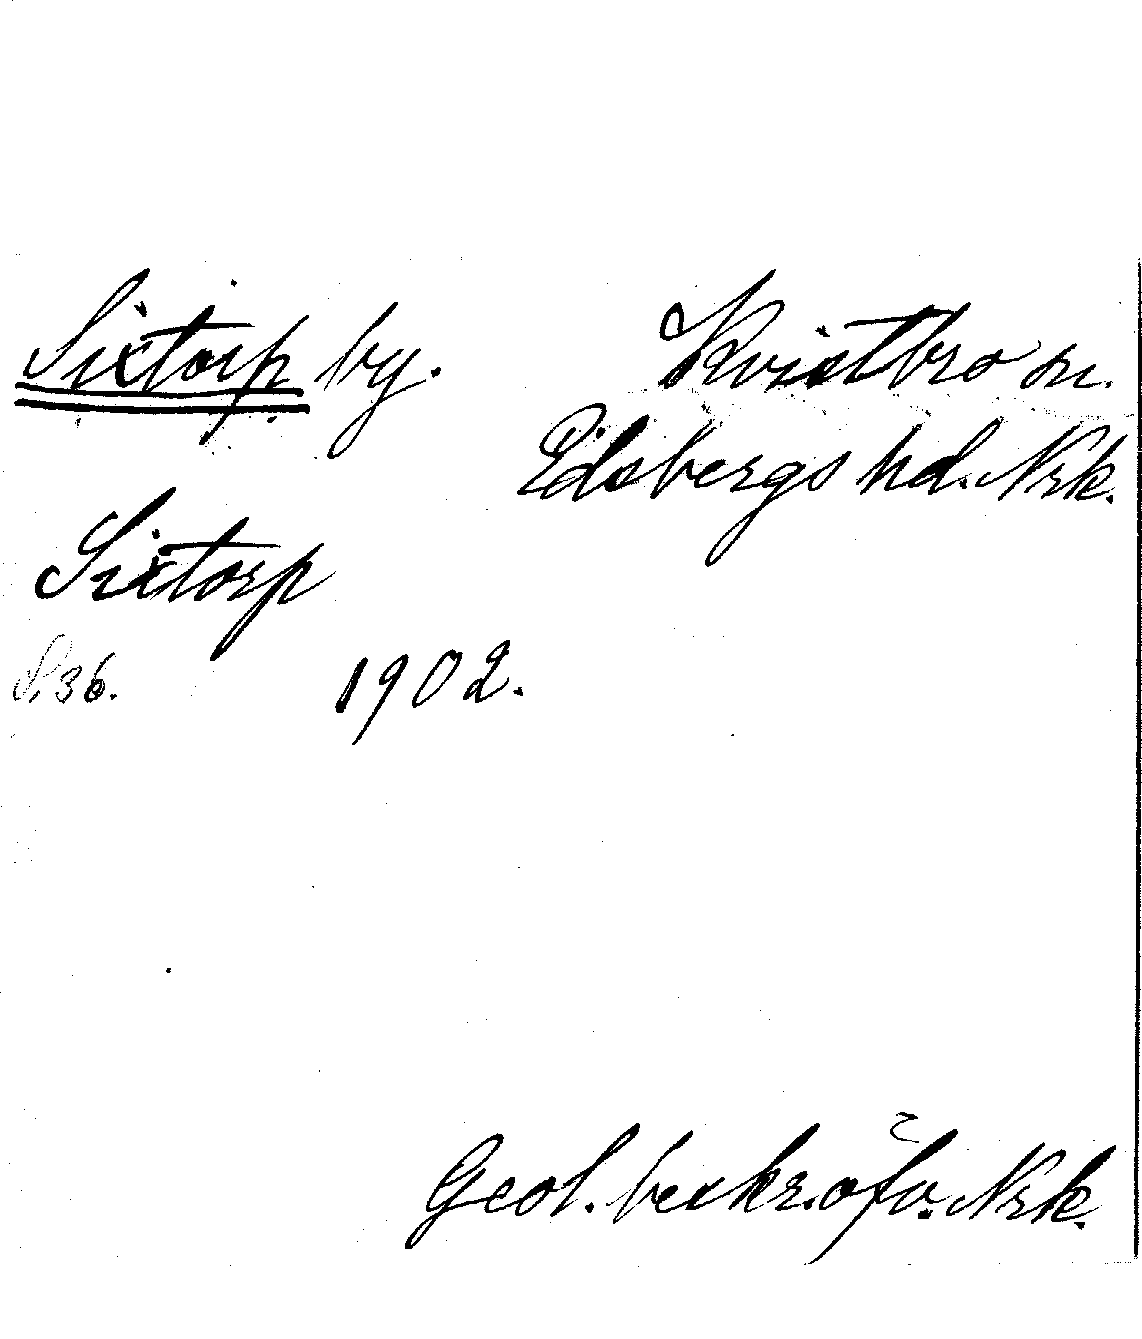 Sixtorp by.
Kvistbro sn.
Edsbergs hd. Nrk.
Sixtorp
S. 36.
1902.
Geol. beskr. öfv. Nrk.